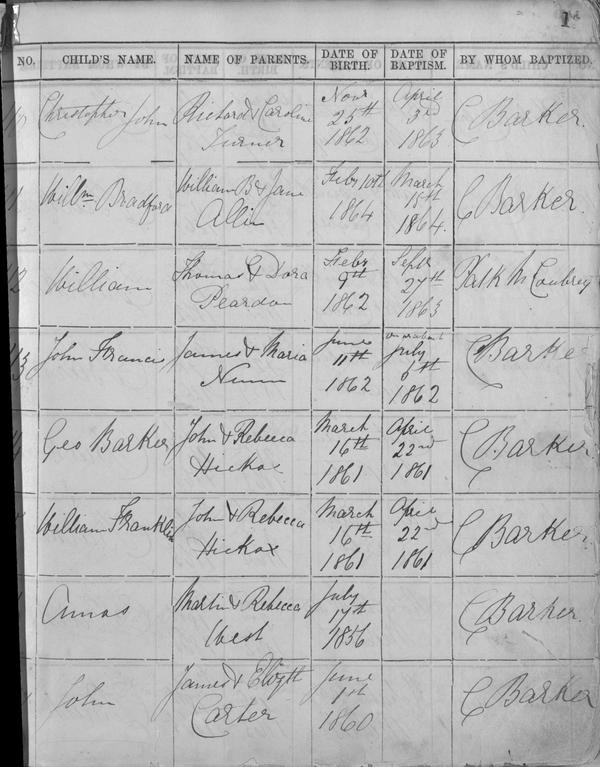 1
NO. CHILD'S NAME. NAME OF PARENTS. DATE OF BIRTH. DATE OF BAPTISM. BY WHOM BAPTIZED.
Christopher John Richard & Caroline Turner Novr 25th 1862 April 3rd 1863 C Barker.
Willm Bradford William B & Jane Allin Feby 10th 1864 March 15th 1864 C Barker.
William Thomas & Dora Peardon Feby 9th 1862 Septr 27th 1863
John Francis James & Maria June 11th 1862 on or about July 6th 1862 C Barker
Geo Barker John & Rebecca Hickox March 16th 1861 April 22nd 1861 C Barker
William Franklin John & Rebecca Hickox March 16th 1861 April 22nd 1861 C Barker
Amos Martin & Rebecca West July 17th 1856 C Barker
John James & Elizth Carter June 1st 1860 C Barker